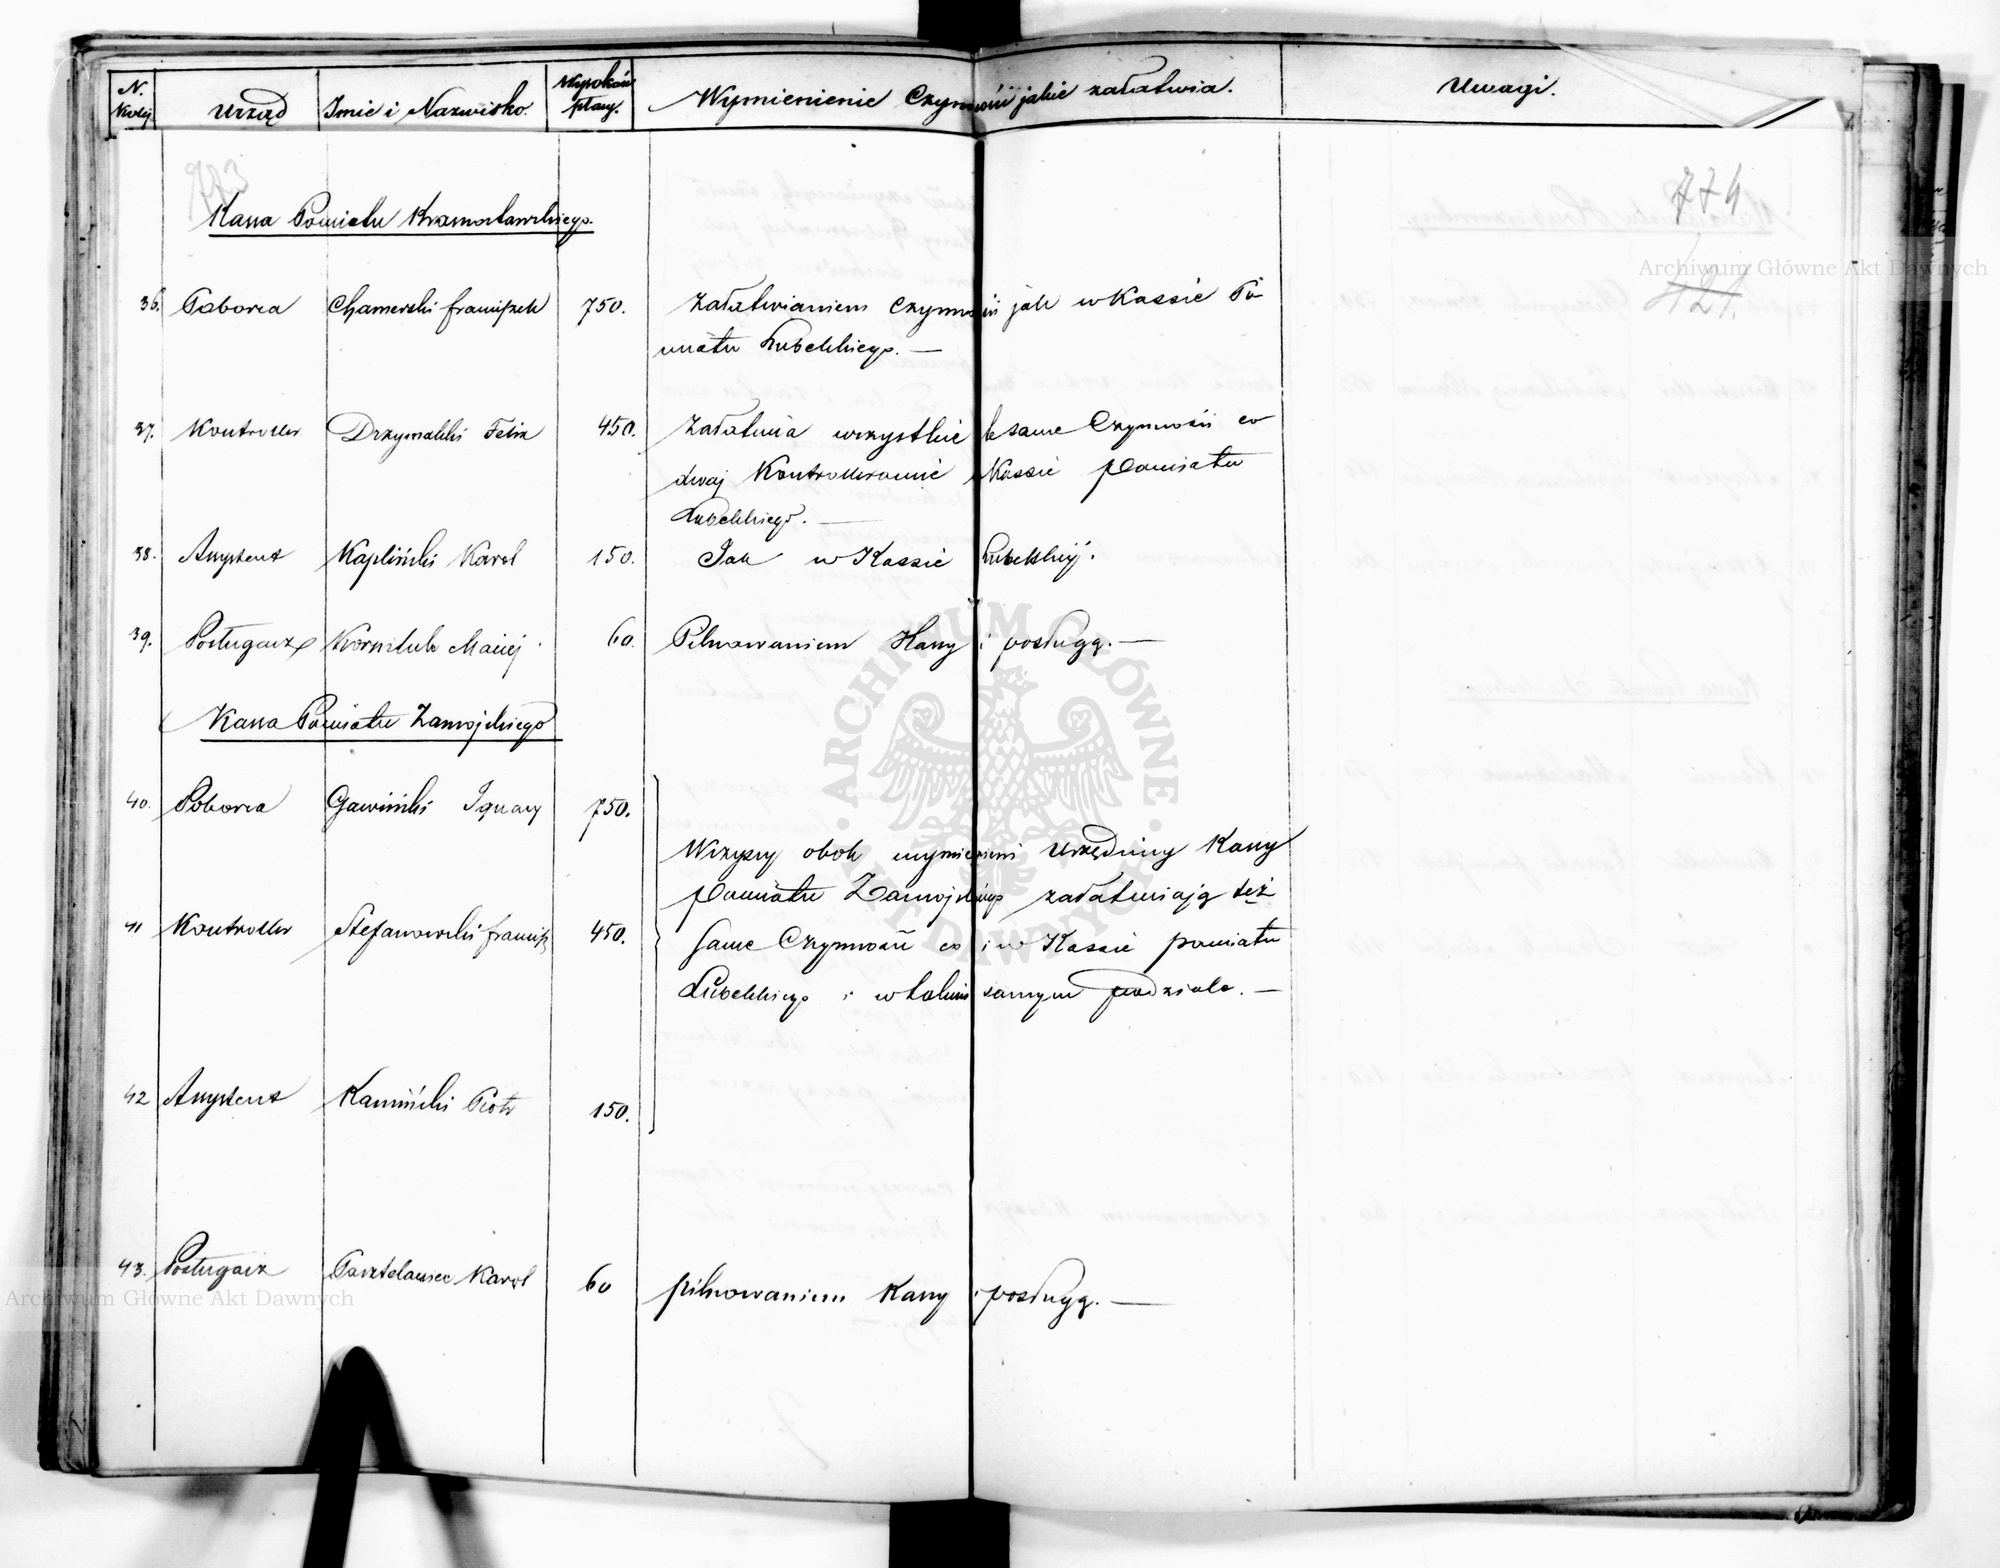 N. Kolej Urząd Imie i Nazwisko. Wysokość płacy. Wymienienie Czynności jakie załatwia. Uwagi.
773
774
Kassa Powiatu Krasnostawskiego.
421.
36. Poborca Chamerski Franciszek 750. Załatwianiem Czynności jak w Kassie Po-
wiatu Lubelskiego. —
37. Kontroller Drzymalski Felix 450. Załatwia wszystkie te same Czynności co
dwaj Kontrollerowie Kassie Powiatu
Lubelskiego. —
38. Assystent Kapliński Karol 150. Jak w Kassie Lubelskiéj.
39. Posługacz Maciej 60. Pilnowaniem Kassy i posługą. —
Kassa Powiatu Zamojskiego
40. Poborca Gawiński Ignacy 750.
Wszyscy obok wymienieni Urzędnicy Kassy
Powiatu Zamojskiego załatwiają też
41 Kontroller Stefanowski Francisz 450. same Czynności co i w Kassie powiatu
Lubelskiego i w takim samym podziale. —
42 Assystent Kamiński Piotr 150.
43. Posługacz Karol 60 pilnowaniem Kassy i posługą. —
Archiwum Główne Akt Dawnych
Archiwum Główne Akt Dawnych
ARCHIWUM GŁÓWNE AKT DAWNYCH